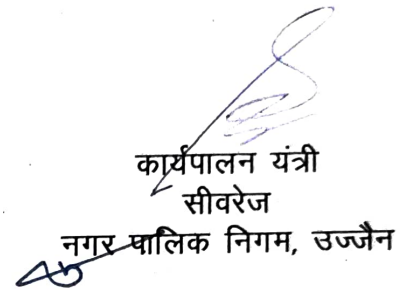 कार्यपालन यंत्री
सीवरेज
नगर पालिक निगम, उज्जैन